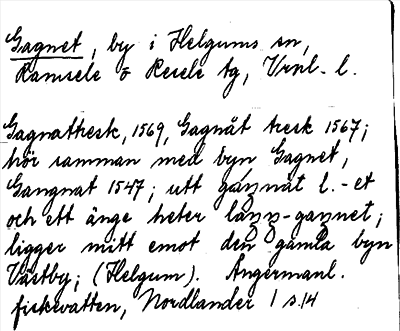 Gagnet, by i Helgums sn,
Ramsele o Resele tg, Vrnl. l.
Gagnathresk, 1569, Gagnåt tresk 1567;
hör samman med byn Gagnet,
Gangnat 1547; utt gaŋnåt l. -et
och ett änge heter låŋŋ-gaŋnet;
ligger mitt emot den gamla byn
Västby; (Helgum). Ångermanl.
fiskevatten, Nordlander 1 s.14